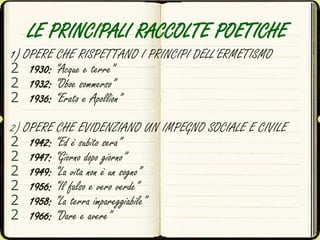 LE PRINCIPALI RACCOLTE POETICHE
1) OPERE CHE RISPETTANO I PRINCIPI DELL'ERMETISMO
2 1930: "Acque e terre"
2 1932: "Oboe sommerso"
2 1936: "Erato e Apollion"
2) OPERE CHE EVIDENZIANO UN IMPEGNO SOCIALE E CIVILE
2 1942: "Ed è subito sera"
2 1947: "Giorno dopo giorno"
2 1949: "La vita non è un sogno"
2 1956: "Il falso e vero verde"
2 1958: "La terra impareggiabile"
2 1966: "Dare e avere"